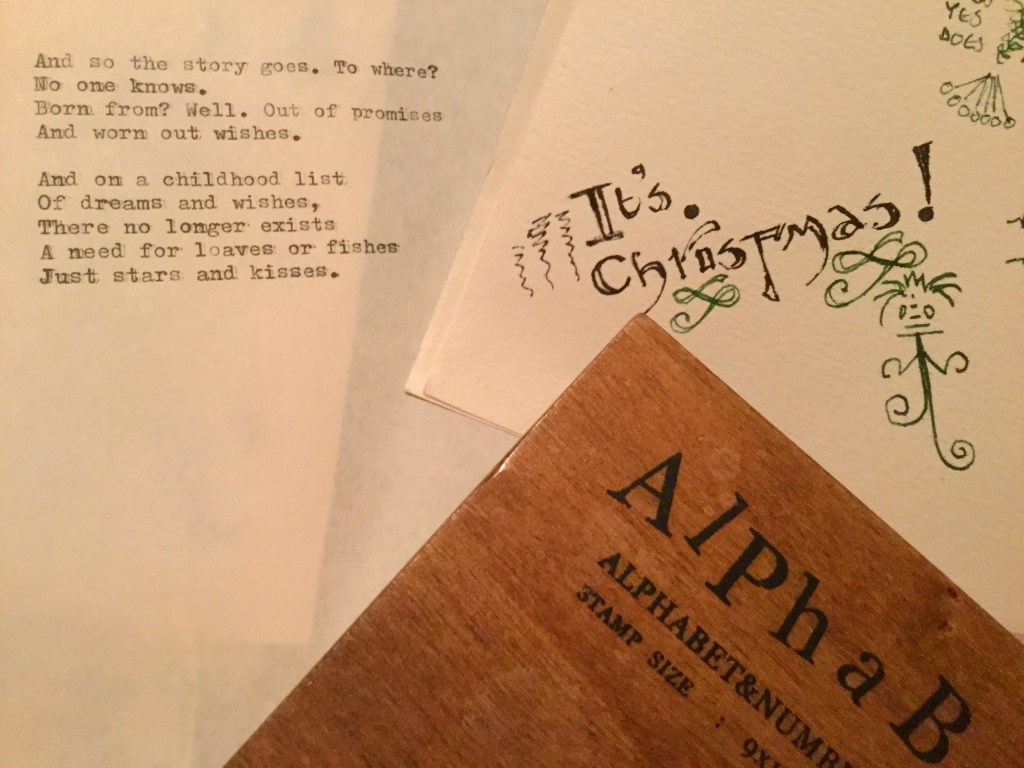 And so the story goes. To where?
No one knows.
Born from? Well. Out of promises
And worn out wishes.
And on a childhood list
Of dreams and wishes,
There no longer exists
A need for loaves or fishes
Just stars and kisses.
YES
DOES
It's.
Christmas!
AlPhaB
ALPHABET&NUMB
STAMP SIZE :